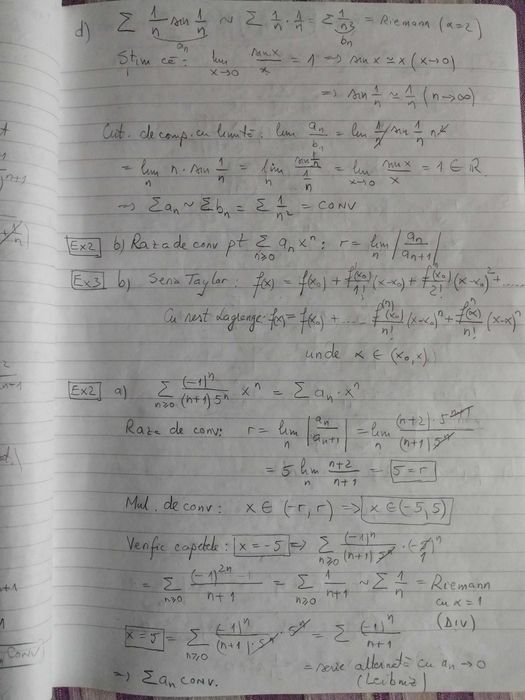 d) ∑ 1/n sin 1/n ~ ∑ 1/n · 1/n = ∑ 1/n² = Riemann (α=2)
a_n b_n
Știm că: lim_{x→0} sin x / x = 1 ⇒ sin x ≃ x (x→0)
⇒ sin 1/n ≃ 1/n (n→∞)
Crit. de comp. cu limită: lim a_n/b_n = lim 1/n sin 1/n n²
= lim_n n · sin 1/n = lim_n (sin 1/n)/(1/n) = lim_{x→0} sin x / x = 1 ∈ ℝ
⇒ ∑ a_n ~ ∑ b_n = ∑ 1/n² = CONV
Ex2 b) Raza de conv pt ∑_{n≥0} a_n x^n : r = lim_n |a_n / a_{n+1}|
Ex3 b) Seria Taylor: f(x) = f(x₀) + f'(x₀)/1! (x-x₀) + f''(x₀)/2! (x-x₀)² + ...
Cu rest Lagrange: f(x) = f(x₀) + ..... f^(n)(x₀)/n! (x-x₀)^n + f^(n)(α)/n! (x-α)^n
unde α ∈ (x₀, x)
Ex2 a) ∑_{n≥0} (-1)^n / (n+1) 5^n x^n = ∑ a_n · x^n
Raza de conv: r = lim_n |a_n / a_{n+1}| = lim_n (n+2) · 5^{n+1} / (n+1) 5^n
= 5 lim_n n+2 / n+1 = 5 = r
Mul. de conv: x ∈ (-r, r) ⇒ x ∈ (-5, 5)
Verific capetele: x = -5 ⇒ ∑_{n≥0} (-1)^n / (n+1) 5^n · (-5)^n
= ∑_{n≥0} (-1)^{2n} / n+1 = ∑_{n≥0} 1 / n+1 ~ ∑ 1/n = Riemann
cu α = 1
(DIV)
x = 5 = ∑_{n≥0} (-1)^n / (n+1) · 5^n · 5^n = ∑ (-1)^n / n+1
= serie alternată cu a_n → 0
⇒ ∑ a_n CONV. (Leibniz)